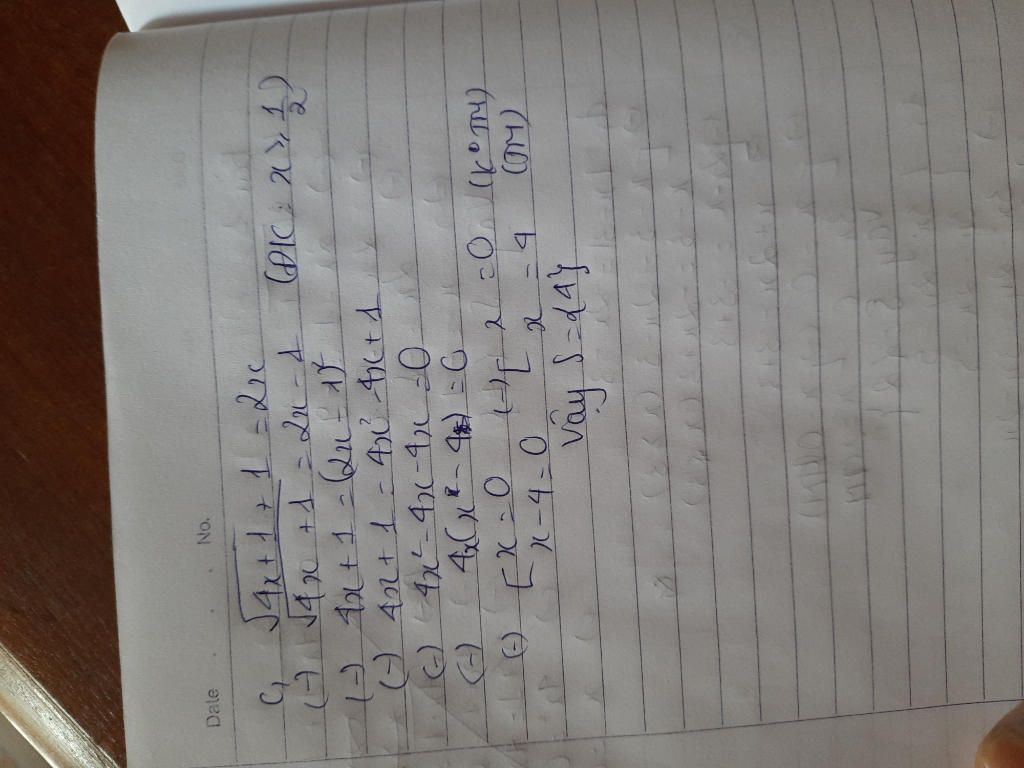 Date No.
c, √4x+1 + 1 = 2x
(-) √4x+1 = 2x-1 (ĐK: x ≥ 1/2)
(-) 4x+1 = (2x-1)²
(-) 4x+1 = 4x² - 4x+1
(-) 4x² - 4x - 4x = 0
(-) 4x(x - 4) = 0
(-) [x = 0 (-) [x = 0 (KoTM)
[x-4=0 [x = 4 (TM)
Vậy S={4}